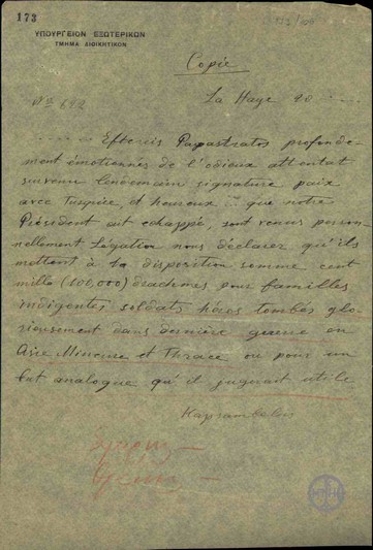 173
ΥΠΟΥΡΓΕΙΟΝ ΕΞΩΤΕΡΙΚΩΝ
ΤΜΗΜΑ ΔΙΟΙΚΗΤΙΚΟΝ
Copie
No 692
La Haye 20 .....
..... Eftaxis Papastratos profonde-
ment émotionnés de l'odieux attentat
survenu lendemain signature paix
avec Turquie, et heureux ... que notre
Président ait échappé, sont venus person-
nellement Légation nous déclarer qu'ils
mettent à ta disposition somme cent
mille (100,000) drachmes pour familles
indigentes soldats héros tombés glo-
rieusement dans dernière guerre en
Asie Mineure et Thrace ou pour un
but analogue qu'il jugerait utile
Kapsambelis